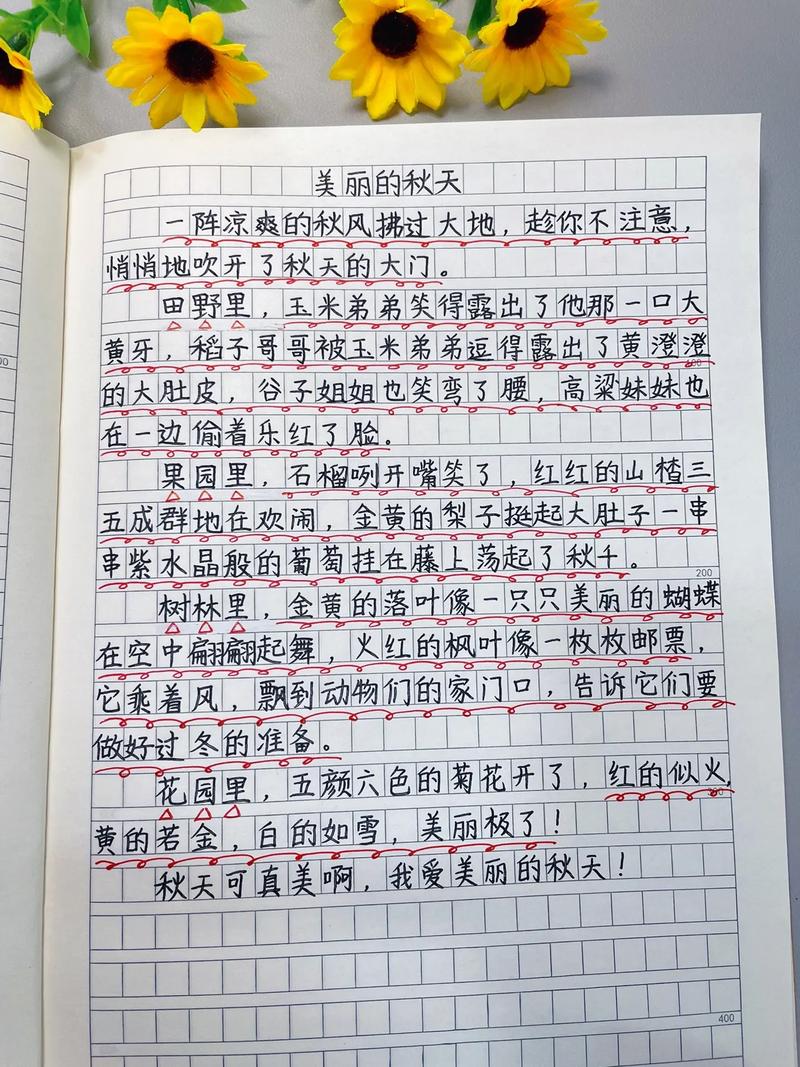 美丽的秋天
一阵凉爽的秋风拂过大地，趁你不注意，
悄悄地吹开了秋天的大门。
田野里，玉米弟弟笑得露出了他那一口大
黄牙，稻子哥哥被玉米弟弟逗得露出了黄澄澄
100
的大肚皮，谷子姐姐也笑弯了腰，高粱妹妹也
在一边偷着乐红了脸。
果园里，石榴咧开嘴笑了，红红的山楂三
五成群地在欢闹，金黄的梨子挺起大肚子一串
串紫水晶般的葡萄挂在藤上荡起了秋千。
200
树林里，金黄的落叶像一只只美丽的蝴蝶
在空中翩翩起舞，火红的枫叶像一枚枚邮票，
它乘着风，飘到动物们的家门口，告诉它们要
做好过冬的准备。
花园里，五颜六色的菊花开了，红的似火，
黄的若金，白的如雪，美丽极了！
秋天可真美啊，我爱美丽的秋天！
400